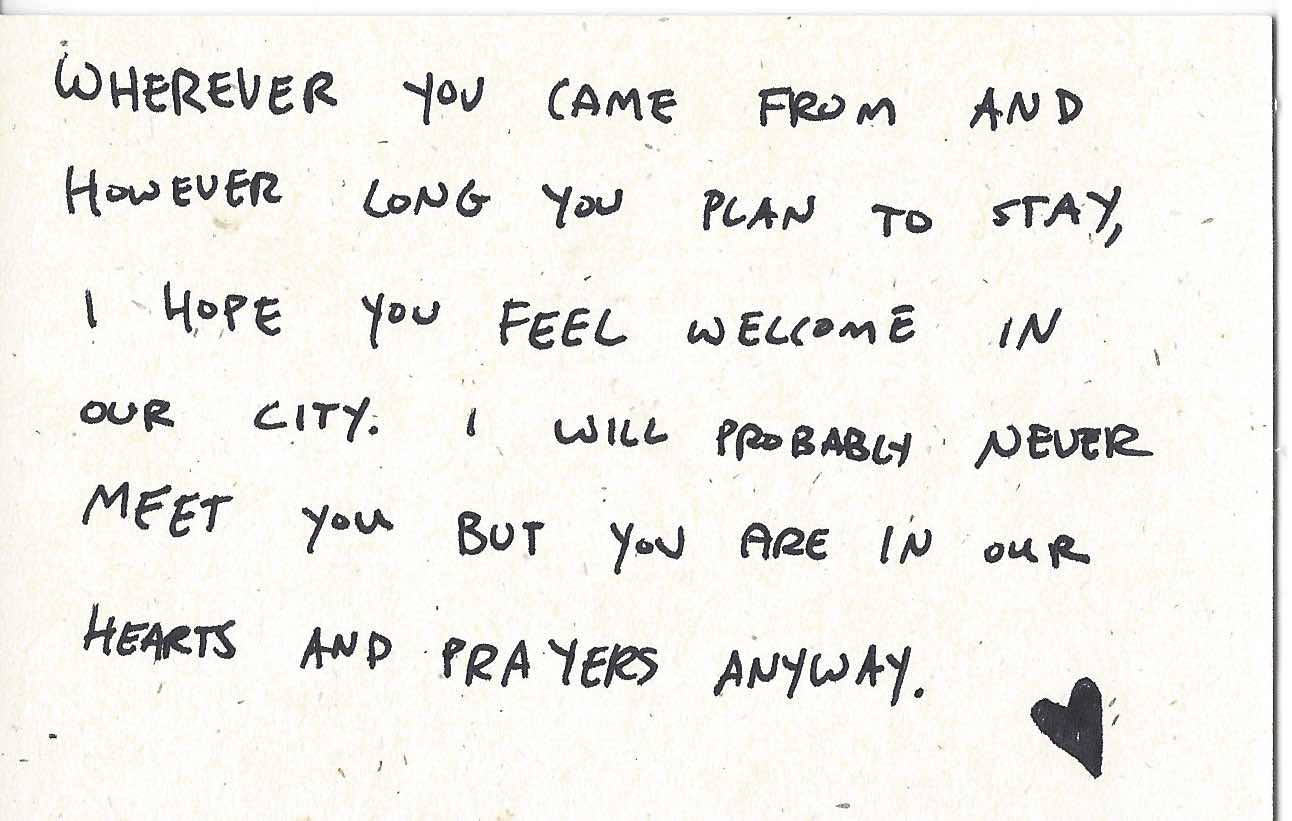 WHEREVER YOU CAME FROM AND
HOWEVER LONG YOU PLAN TO STAY,
I HOPE YOU FEEL WELCOME IN
OUR CITY. I WILL PROBABLY NEVER
MEET YOU BUT YOU ARE IN OUR
HEARTS AND PRAYERS ANYWAY.